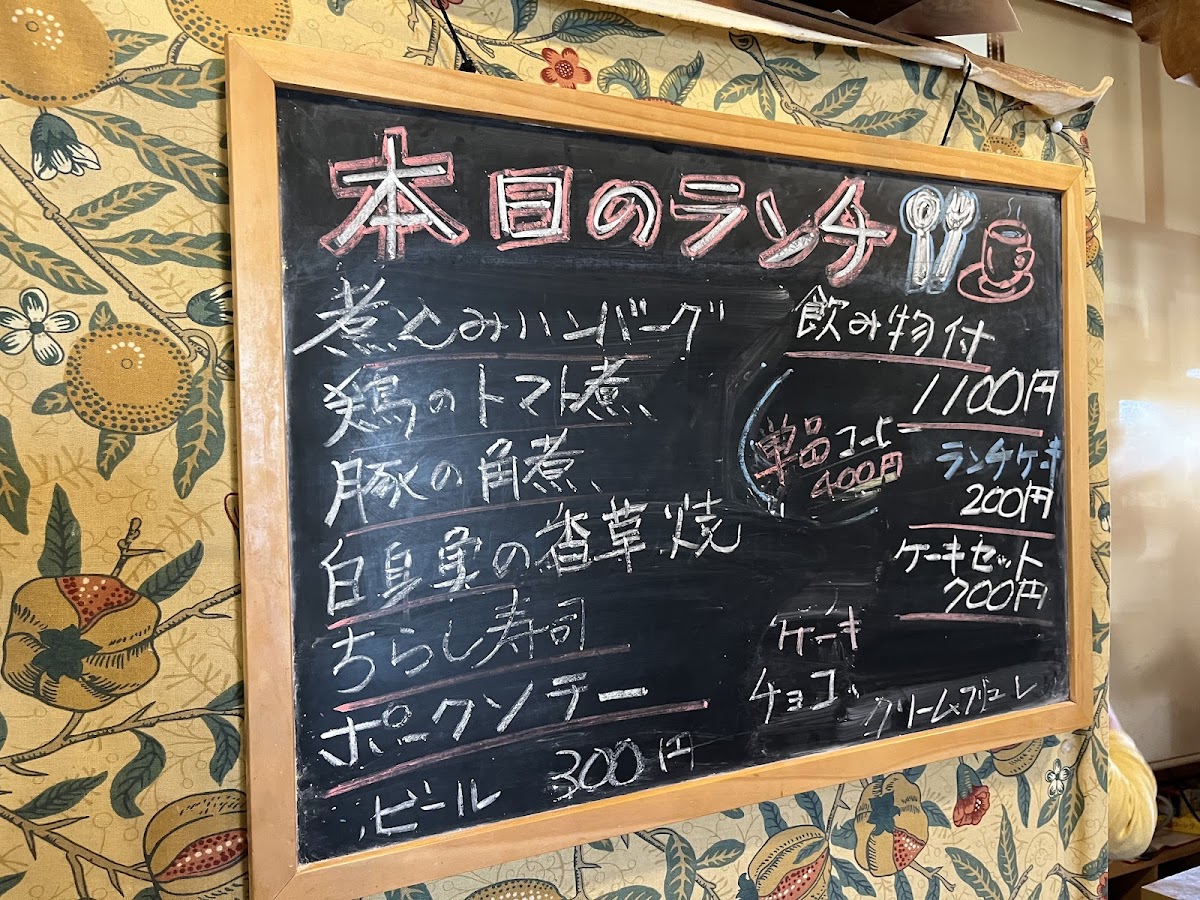 本日のランチ
煮込みハンバーグ
鶏のトマト煮
豚の角煮
白身魚の香草焼
ちらし寿司
ポークソテー
ビール 300円
飲み物付
1100円
単品コーヒー
400円
ランチケーキ
200円
ケーキセット
700円
ケーキ
チョコ クリームブリュレ